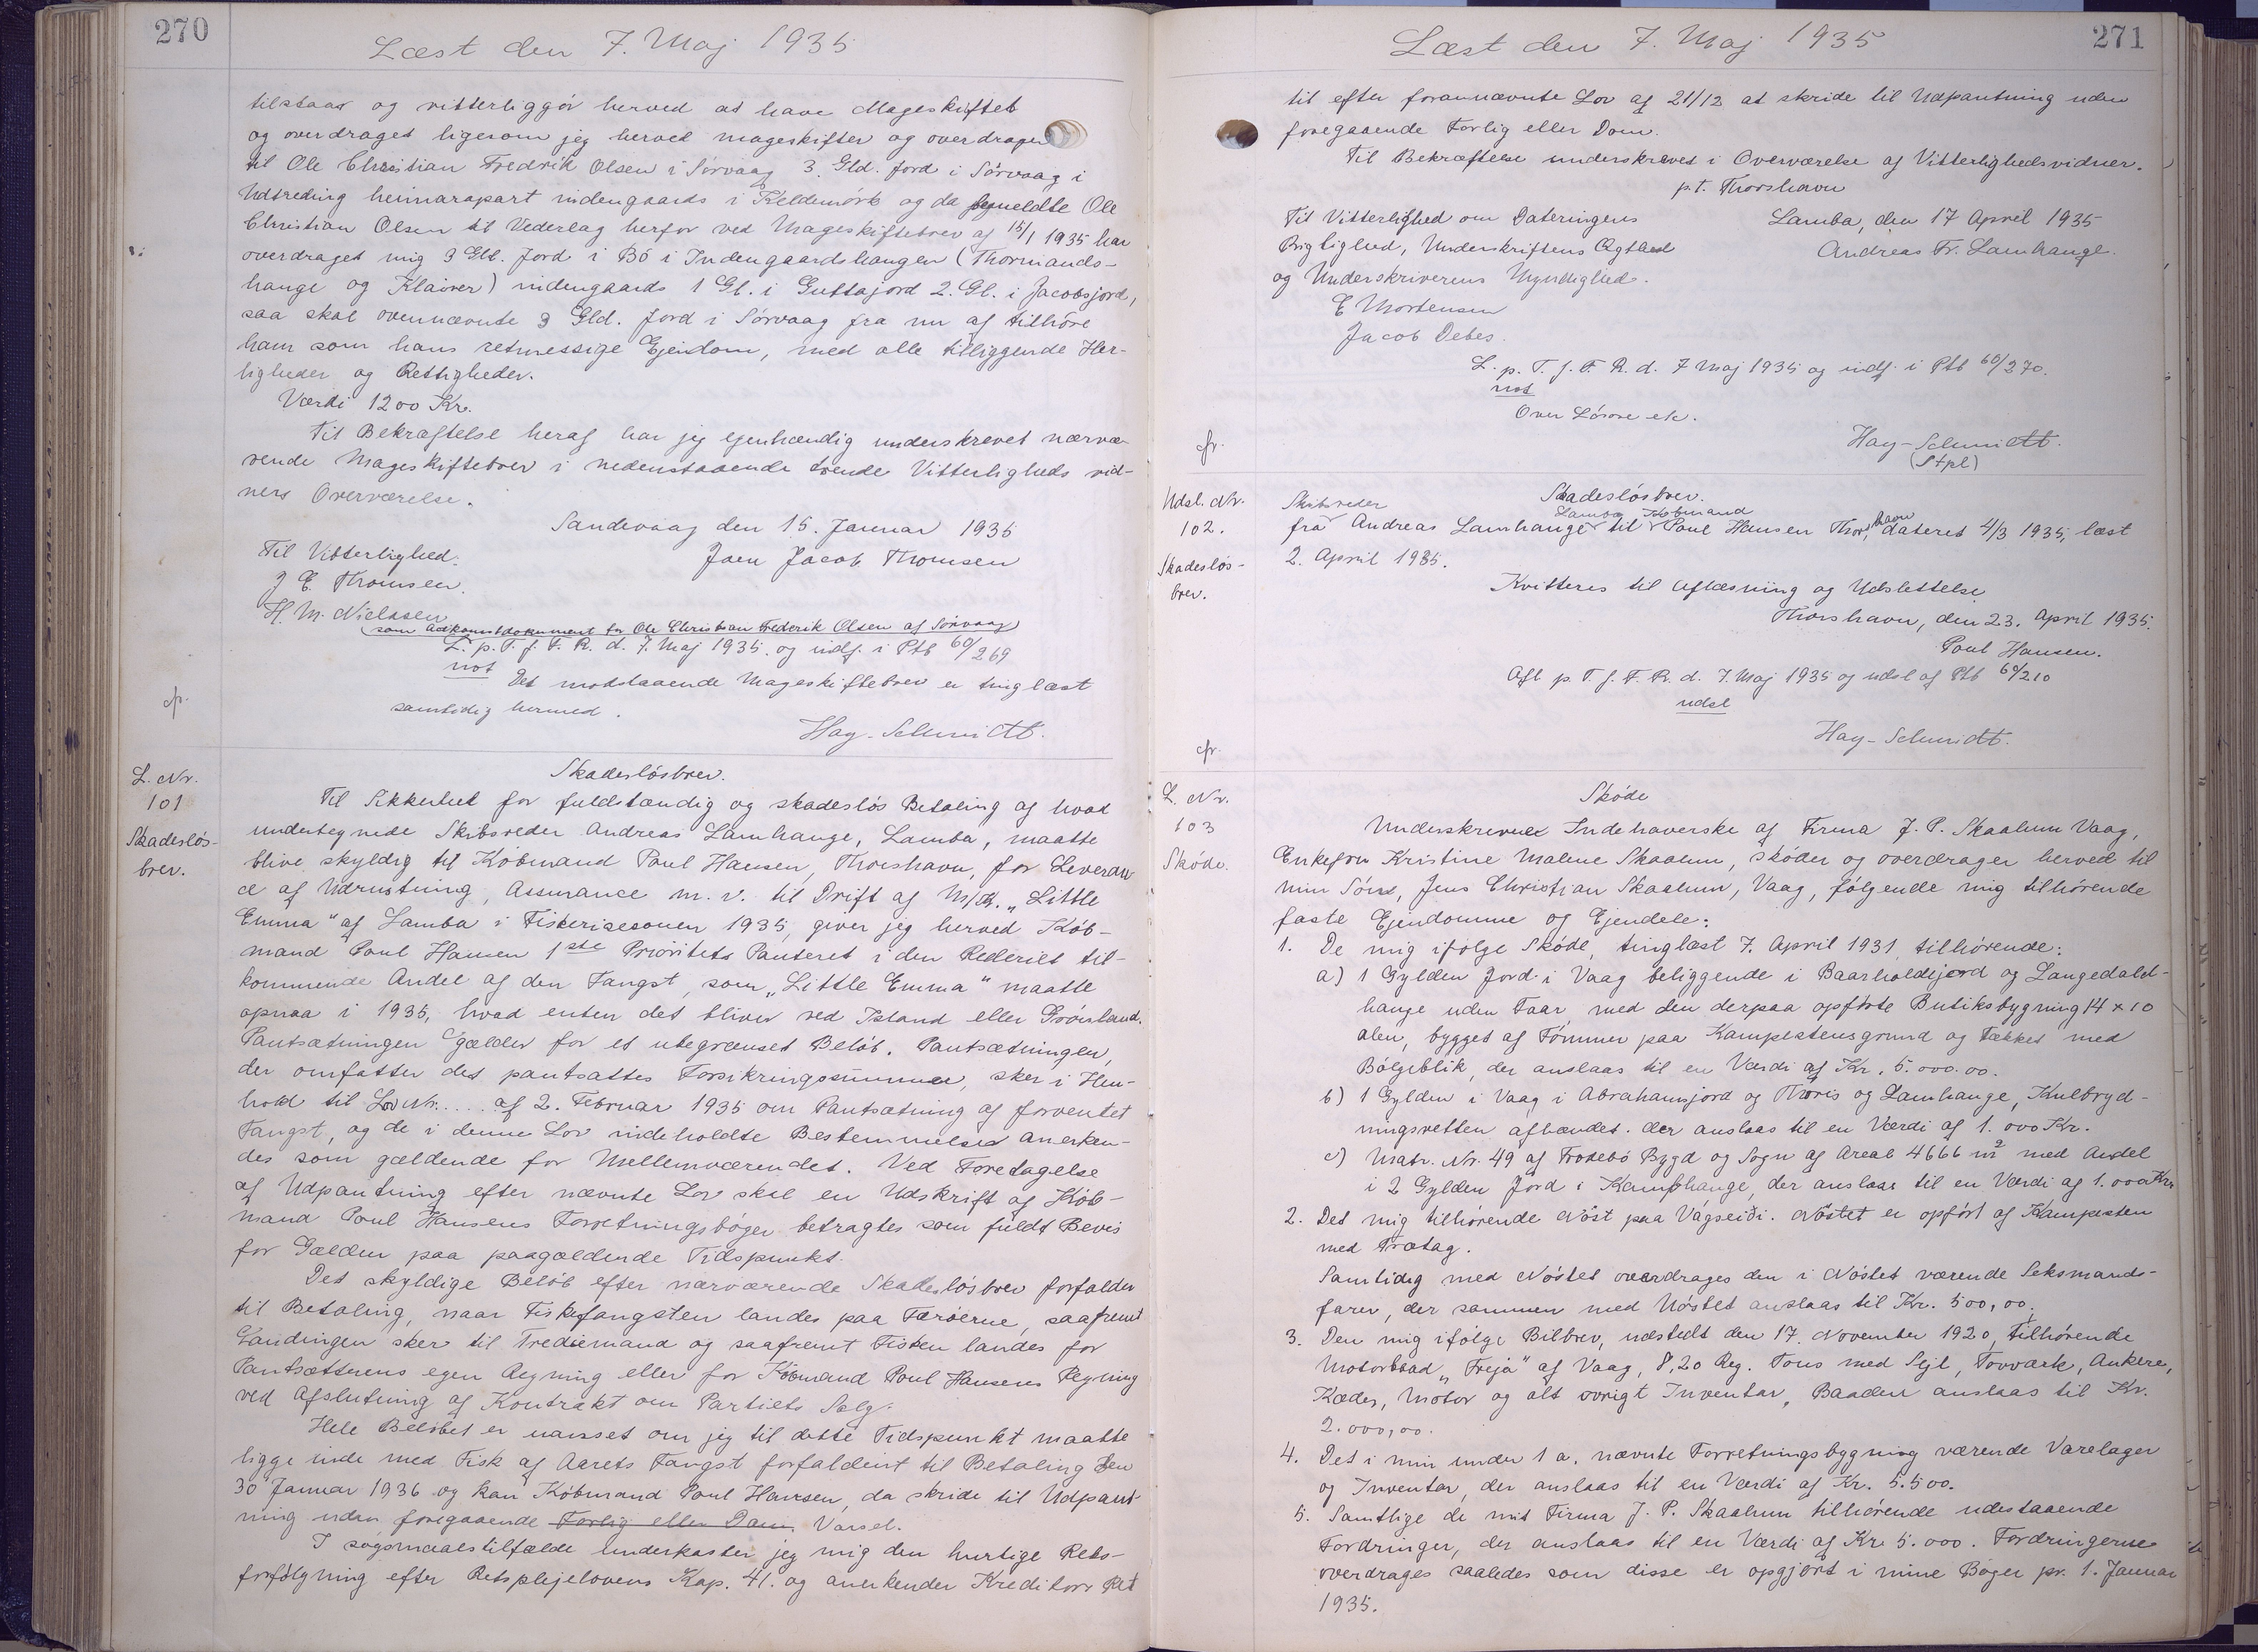 270
Læst den 7. Maj 1935
tilstaar og vitterliggör herved at have Mageskiftet
og overdraget ligesom jeg herved mageskifter og overdrager
til Ole Christian Fredrik Olsen i Sörvaag 3. Gld. Jord i Sörvaag i
Udtreding heimarapart indengaards i Keldemörk og da formeldte Ole
Christian Olsen til Vederlag herfor ved Mageskiftebrev af 15/1 1935 har
overdraget mig 3 Gld. Jord i Bö i Indengaardshangen (Thormands-
hange og Klaiver) indengaards 1 Gl. i Guttajord 2. Gl. i Jacobsjord,
saa skal ovennævnte 3 Gld. Jord i Sörvaag fra nu af tilhöre
ham som hans retmessige Ejendom, med alle tilliggende Her-
ligheder og Rettigheder.
Værdi 1200 Kr.
Til Bekræftelse heraf har jeg egenhændig underskrevet nærvæ-
rende Mageskiftebrev i nedenstaaende tvende Vitterligheds vid-
ners Overværelse.
Sandevaag den 15. Januar 1935
Til Vitterlighed:
Joen Jacob Thomsen
J E. Thomsen.
H. M. Nielsen
(som Adkomstdokument for Ole Christian Frederik Olsen af Sörvaag)
L. p. T. f. F. R. d. 7. Maj 1935. og indf. i Ptb 60/269
not
Det modstaaende Mageskiftebrev er tinglæst
samtidig hermed.
cfr.
Hay-Schmidt.
L. Nr.
101
Skadeslös-
brev.
Skadeslösbrev.
Til Sikkerhet for fuldstændig og skadeslös Betaling af hvad
undertegnede Skibsreder Andreas Lamhange, Lamba, maatte
blive skyldig til Köbmand Poul Hansen, Thorshavn, for Leveran
ce af Udrustning, Assurance m. v. til Drift af M/K. „Little
Emma" af Lamba i Fiskerisesonen 1935, giver jeg herved Köb-
mand Poul Hansen 1ste Prioritets Panteret i den Rederiet til-
kommende Andel af den Fangst, som „Little Emma" maatte
opnaa i 1935, hvad enten det bliver ved Island eller Grönland.
Pantsætningen gælder for et ubegrænset Belöb. Pantsætningen,
der omfatter det pantsattes Forsikringssummer, sker i Hen-
hold til Lov Nr..... af 2. Februar 1935 om Pantsætning af forventet
Fangst, og de i denne Lov indeholdte Bestemmelser anerken-
des som gældende for Mellemværendet. Ved Foretagelse
af Udpantning efter nævnte Lov skal en Udskrift af Köb-
mand Poul Hansens Forretningsböger betragtes som fuldt Bevis
for Gælden paa paagældende Tidspunkt.
Det skyldige Belöb efter nærværende Skadeslösbrev forfalder
til Betaling, naar Fiskefangsten landes paa Færöerne, saafremt
Landingen sker til Trediemand og saafremt Fisken landes for
Pantsætterens egen Regning eller for Köbmand Poul Hansens Regning
ved Afslutning af Kontrakt om Partiets Salg.
Hele Belöbet er uanset om jeg til dette Tidspunkt maatte
ligge inde med Fisk af Aarets Fangst forfaldent til Betaling den
30 Januar 1936 og kan Köbmand Poul Hansen, da skride til Udpant-
ning uden foregaaende Forlig eller Dom. Varsel.
I sögsmaalstilfælde underkaster jeg mig den hurtige Rets-
forfölgning efter Retsplejelovens Kap. 41. og anerkender Kreditors Ret
271
Læst den 7. Maj 1935
til efter forannævnte Lov af 21/12 at skride til Udpantning uden
foregaaende Forlig eller Dom.
Til Bekræftelse underskrevet i Overværelse af Vitterlighedsvidner.
p.t. Thorshavn
Til Vitterlighed om Dateringens
Lamba, den 17 April 1935
Rigtighed, Underskriftens Ægthed
Andreas Fr. Lamhange.
og Underskriverens Myndighed.
E Mortensen
Jacob Debes.
L. p. T. f. F. R. d. 7 Maj 1935 og indf. i Ptb 60/270.
not
Over Lösöre etc.
cfr.
Hay-Schmidt.
(Stpl)
Udsl. Nr.
102.
Skadeslös-
brev.
Skadeslösbrev.
Skibsreder Lamba Köbmand havn
fra Andreas Lamhange til Poul Hansen Thors, dateret 4/3 1935, læst
2. April 1935.
Kvitteres til Aflæsning og Udslettelse
Thorshavn, den 23. April 1935.
Poul Hansen.
Afl p. T. f. F. R. d. 7. Maj 1935 og udsl af Ptb 60/210
udsl
cfr.
Hay-Schmidt.
L. Nr.
103
Sköde.
Sköde
Underskrevne Indehaverske af Firma J. P. Skaalum Vaag,
Enkefru Kristine Malene Skaalum, sköder og overdrager herved til
min Sön, Jens Christian Skaalum, Vaag, fölgende mig tilhörende
faste Ejendomme og Ejendele:
1. De mig ifölge Sköde, tinglæst 7. April 1931 tilhörende:
a) 1 Gylden Jord i Vaag beliggende i Baarholdejord og Langedals-
hange uden Faar, med den derpaa opförte Butiksbygning 14 x 10
alen, bygget af Tömmer paa Kampestensgrund og Tækket med
Bölgeblik, der anslaas til en Værdi af Kr. 5.000.00.
b) 1 Gylden i Vaag i Abrahamsjord og Thoris og Lamhange, Kulbryd-
ningsretten afhændet. der anslaas til en Værdi af 1.000 Kr.
c) Matr. Nr. 49 af Frodebö Bygd og Sogn af Areal 4666 m2 med Andel
i 2 Gylden Jord i Kamphange, der anslaas til en Værdi af 1.000 Kr
2. Det mig tilhörende Nöst paa Vágseiði. Nöstet er opfört af Kampesten
med Trætag.
Samtidig med Nöstet overdrages den i Nöstet værende Seksmands-
farer, der sammen med Nöstet anslaas til Kr. 500,00.
3. Den mig ifölge Bilbrev, udstedt den 17. November 1920, tilhörende
Motorbaad „Freja" af Vaag, 8,20 Reg. Tons med Sejl, Tovværk, Ankere,
Kæder, Motor og alt övrigt Inventar, Baaden anslaas til Kr.
2.000,00.
4. Det i min under 1 a. nævnte Forretningsbygning værende Varelager
og Inventar, der anslaas til en Værdi af Kr. 5.500.
5. Samtlige de mit Firma J. P. Skaalum tilhörende udestaaende
Fordringer, der anslaas til en Værdi af Kr. 5.000. Fordringerne
overdrages saaledes som disse er opgjort i mine Böger pr. 1. Januar
1935.